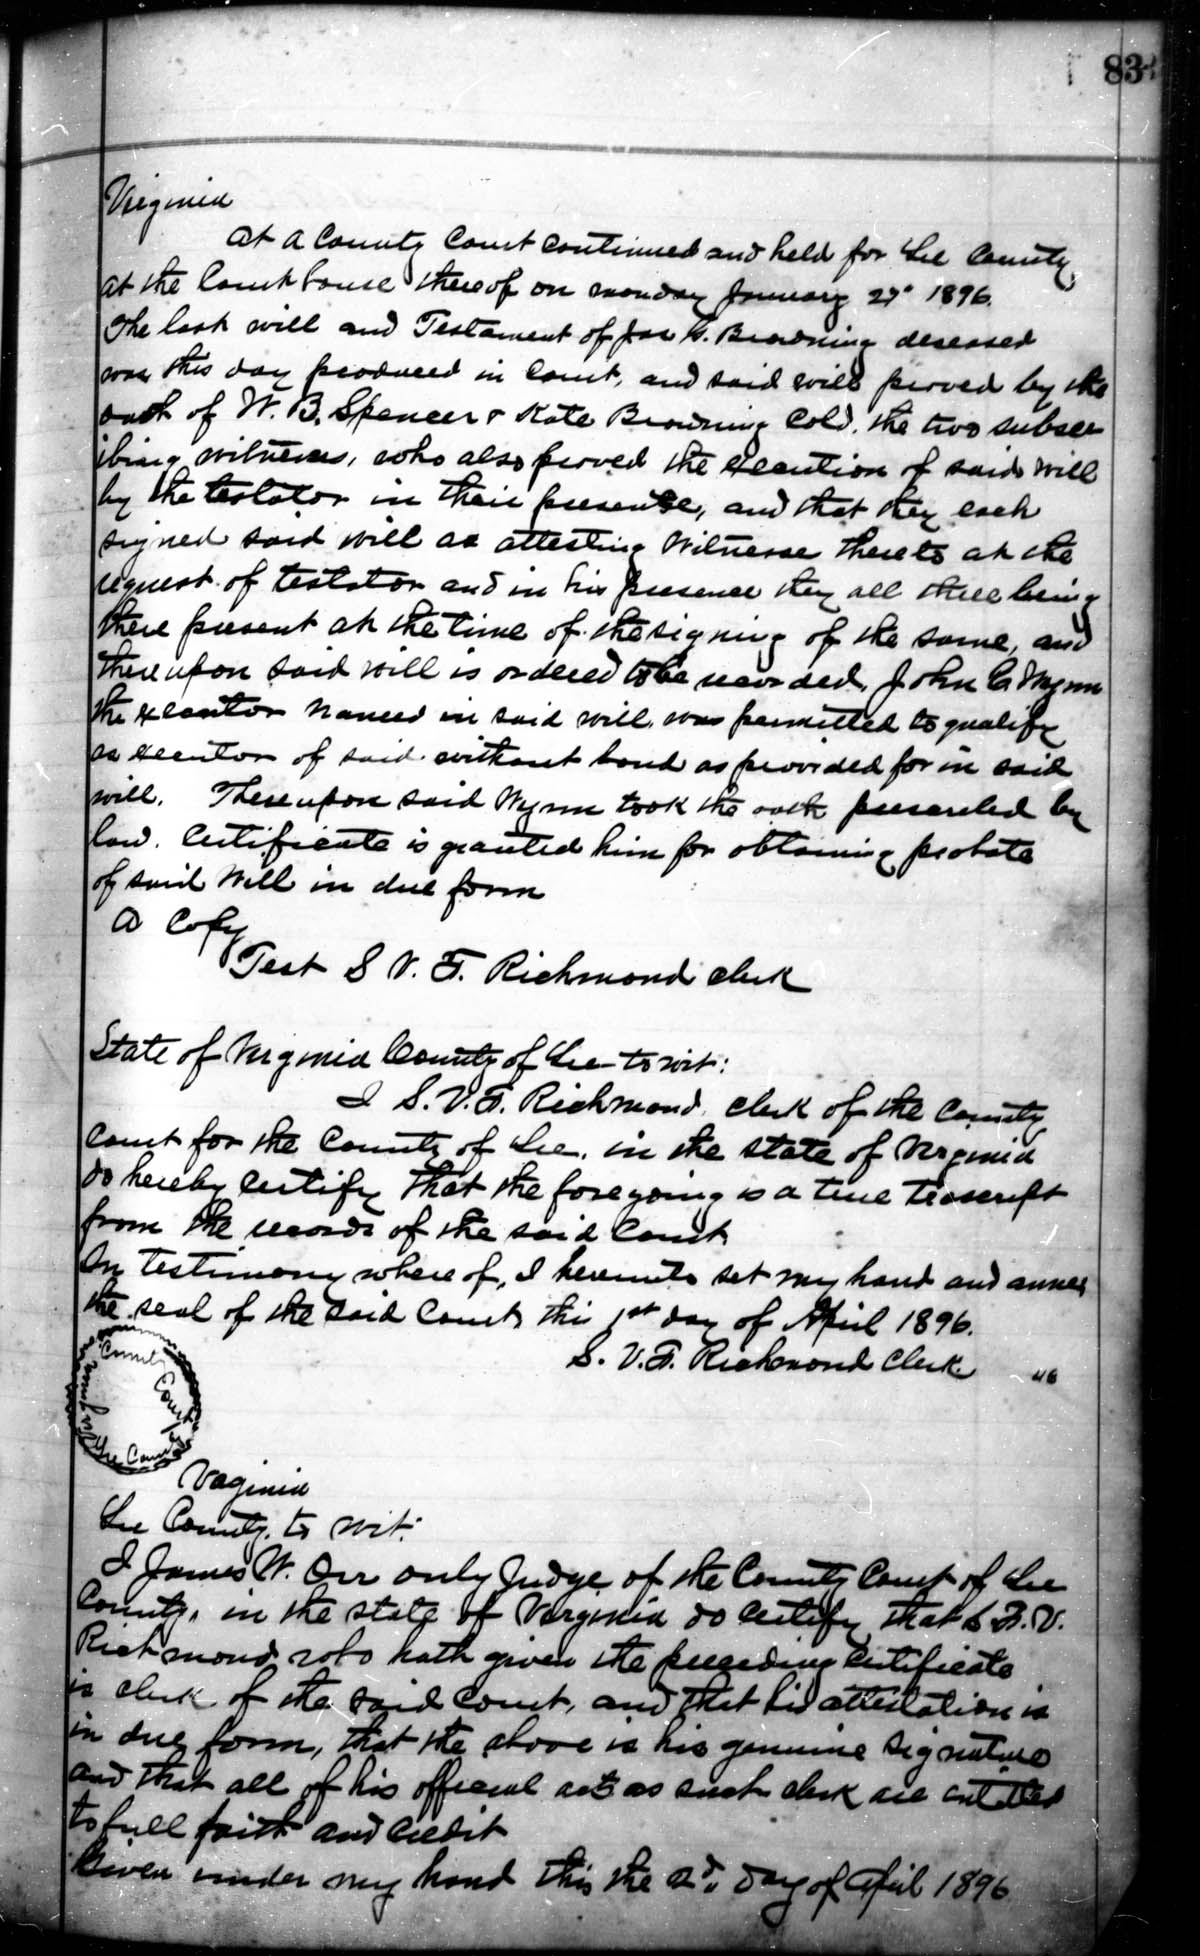 83
Virginia
At a County Court continued and held for Lee County
at the Court house thereof on monday January 27" 1896.
The last will and Testament of Jas G. Browning deseased
was this day produced in Court, and said will proved by the
oath of W. B. Spencer & Kate Browning Cold. the two subscr
ibing witneses, who also proved the execution of said will
by the testator in their presence, and that they each
signed said will as attesting Witnesse thereto at the
request of testator and in his presence they all three being
there present at the time of the signing of the same, and
thereupon said will is ordered to be recorded. John C Wynn
the executor named in said will was permitted to qualify
as executor of said without bond as provided for in said
will. Thereupon said Wynn took the oath prescribed by
law. Certificate is granted him for obtaining probate
of said Will in due form
A Copy
Test S V. F. Richmond clerk
State of Virginia County of Lee to wit:
I S. V. F. Richmond clerk of the County
Court for the County of Lee, in the state of Virginia
do hereby certify that the foregoing is a true transcript
from the records of the said Court
In testimony where of, I hereunto set my hand and annex
the seal of the said Court, this 1st day of April 1896.
S. V. F. Richmond Clerk.
County Court
Lee County
Virginia
Virginia
Lee County, to wit:
I James W. Orr only Judge of the County Court of Lee
County, in the state of Virginia do certify that S F. V.
Richmond who hath given the preceding certificate
is clerk of the said Court, and that his attestation is
in due form, that the above is his genuine signature
and that all of his official acts as such clerk are entitled
to full faith and credit
Given under my hand this the 2d day of April 1896